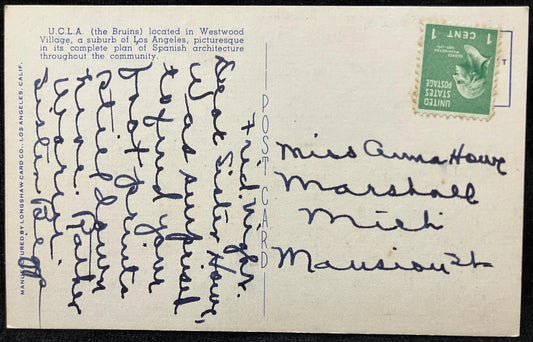 U.C.L.A. (the Bruins) located in Westwood
Village, a suburb of Los Angeles, picturesque
in its complete plan of Spanish architecture
throughout the community.
MANUFACTURED BY LONGSHAW CARD CO., LOS ANGELES, CALIF.
Frid. Night.
Dear Sister Howe,
Was surprised
to find your
foot prints
still down
here. Rather
POST CARD
UNITED
STATES
POSTAGE
1 CENT 1
Miss Anna Howe
Marshall
Mich
Mansion St